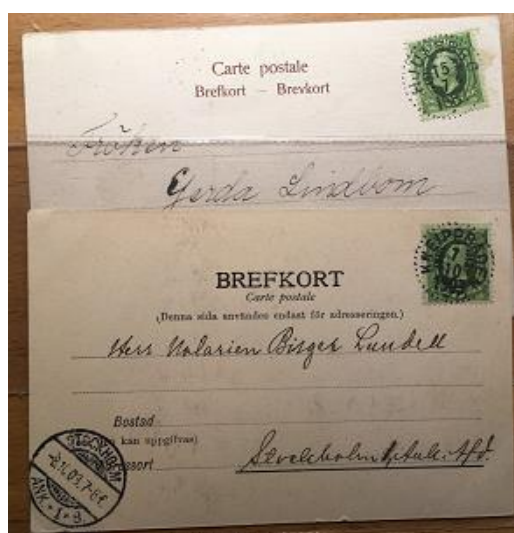 Carte postale
Brefkort — Brevkort
15
Fröken
Gerda Lindbom
KNEIPPBADEN
7
10
BREFKORT
Carte postale
(Denna sida användes endast för adresseringen.)
Herr Notarien Birger Lundell
Bostad
kan uppgifvas)
Stockholm
STOCKHOLM
ANK. 1